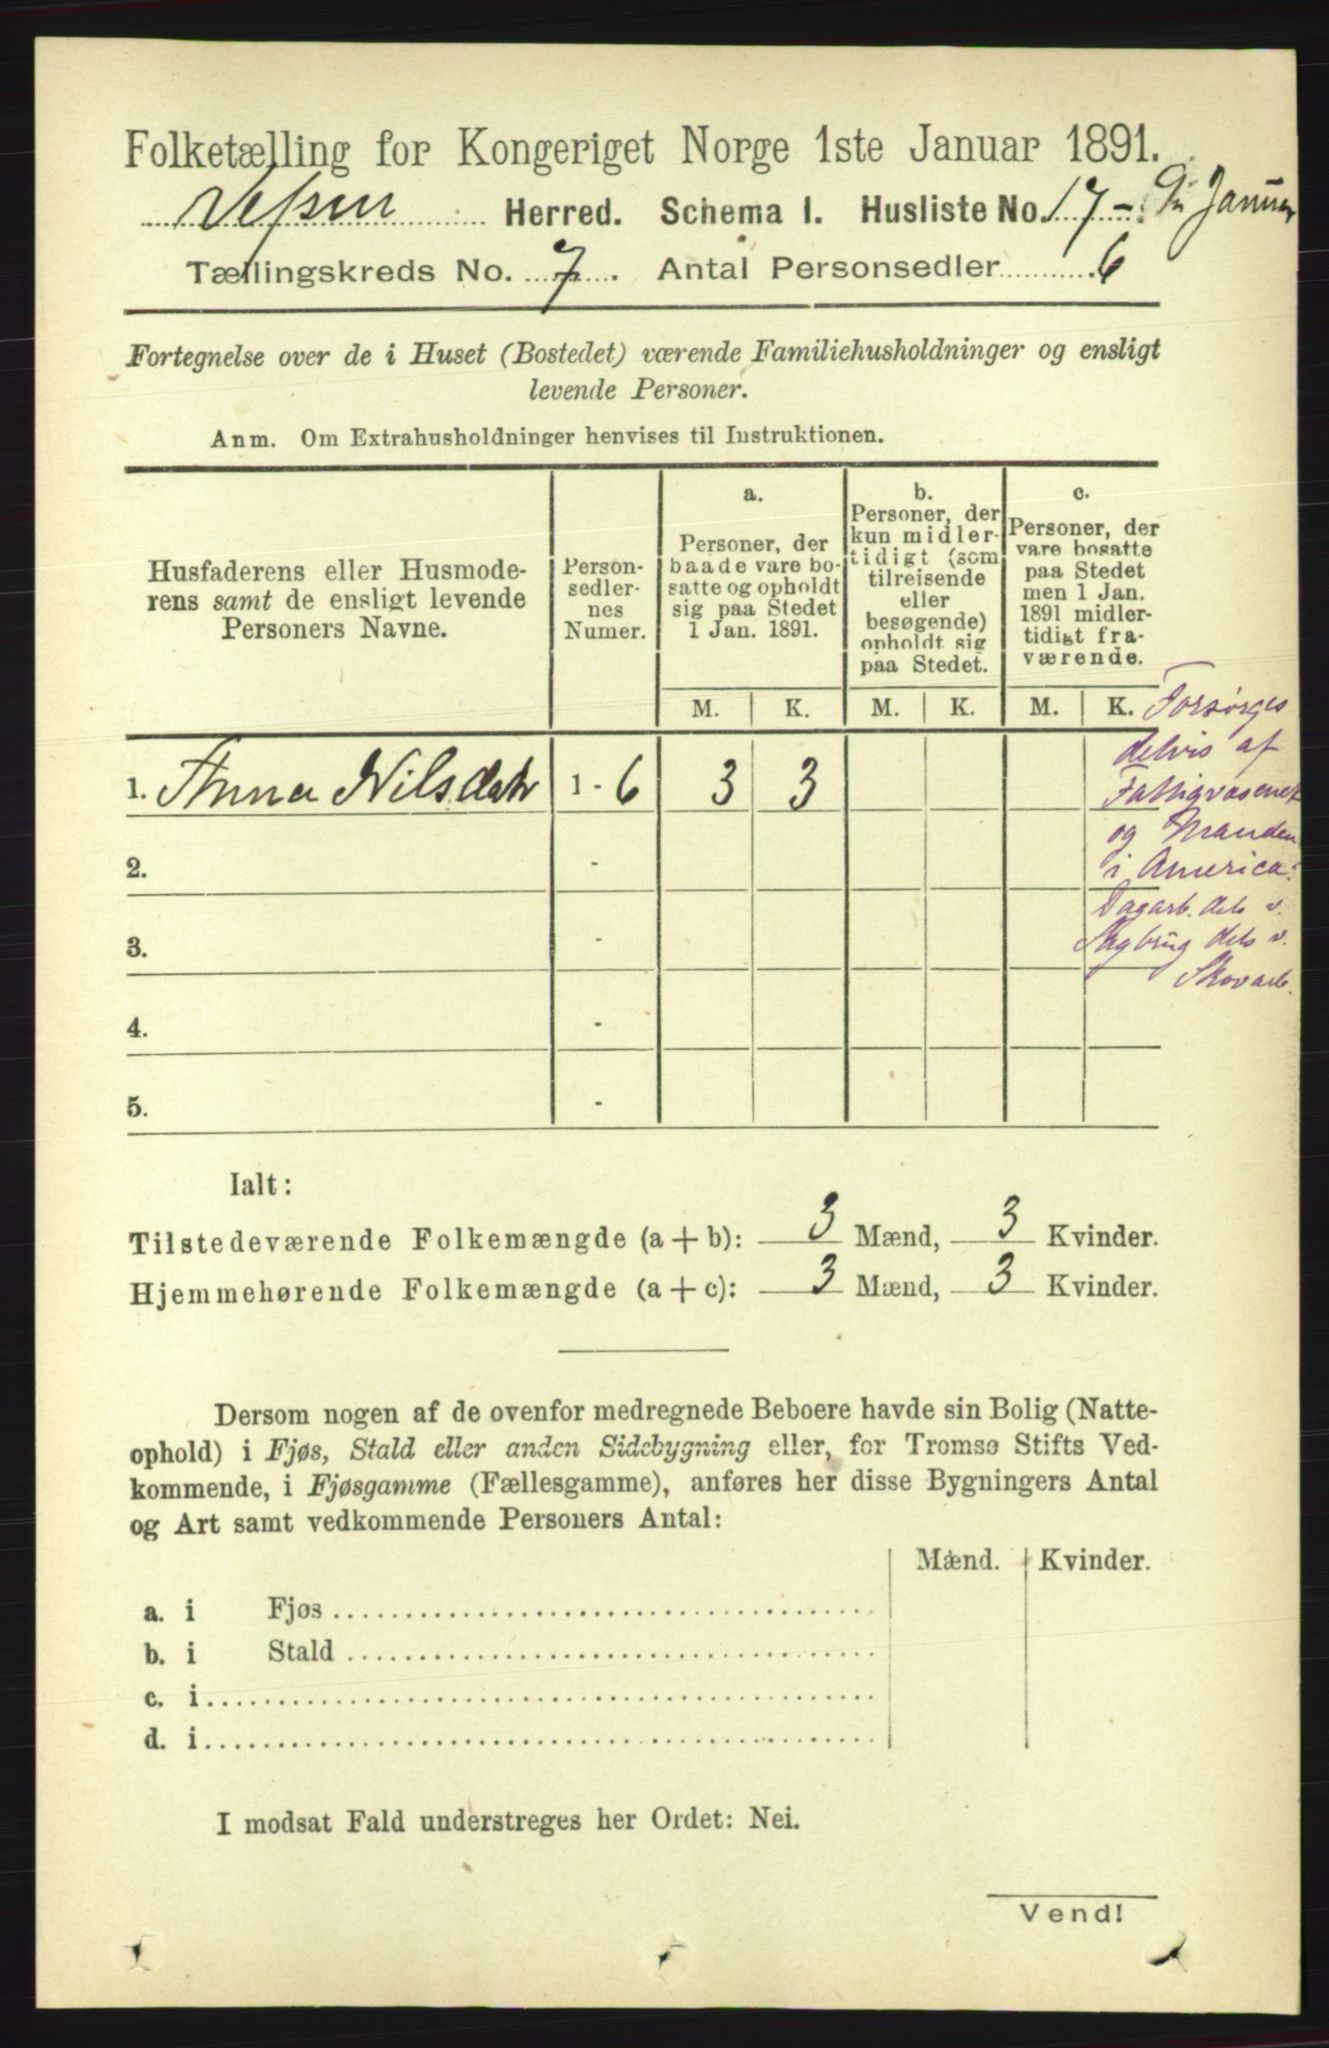 Folketælling for Kongeriget Norge 1ste Januar 1891.
Vefsen Herred. Schema I. Husliste No. 17 -
Tællingskreds No. 7. Antal Personsedler 6
Fortegnelse over de i Huset (Bostedet) værende Familiehusholdninger og ensligt
levende Personer.
Anm. Om Extrahusholdninger henvises til Instruktionen.
Husfaderens eller Husmode-
rens samt de ensligt levende
Personers Navne.
Person-
sedler-
nes
Numer.
a.
Personer, der
baade vare bo-
satte og opholdt
sig paa Stedet
1 Jan. 1891.
b.
Personer, der
kun midler-
tidigt (som
tilreisende
eller
besøgende)
opholdt sig
paa Stedet.
c.
Personer, der
vare bosatte
paa Stedet
men 1 Jan.
1891 midler-
tidigt fra-
værende.
M. K. M. K. M. K.
Forsørges
delvis af
Fattigvæsenet
og Manden
i America.
Dagarb. dels v.
Sagbrug dels v.
Skovarb.
1. Anna Nilsdatr 1 - 6 3 3
2. -
3. -
4. -
5. -
Ialt:
Tilstedeværende Folkemængde (a + b): 3 Mænd, 3 Kvinder.
Hjemmehørende Folkemængde (a + c): 3 Mænd, 3 Kvinder.
Dersom nogen af de ovenfor medregnede Beboere havde sin Bolig (Natte-
ophold) i Fjøs, Stald eller anden Sidebygning eller, for Tromsø Stifts Ved-
kommende, i Fjøsgamme (Fællesgamme), anføres her disse Bygningers Antal
og Art samt vedkommende Personers Antal:
Mænd. Kvinder.
a. i Fjøs
b. i Stald
c. i
d. i
I modsat Fald understreges her Ordet: Nei.
Vend!